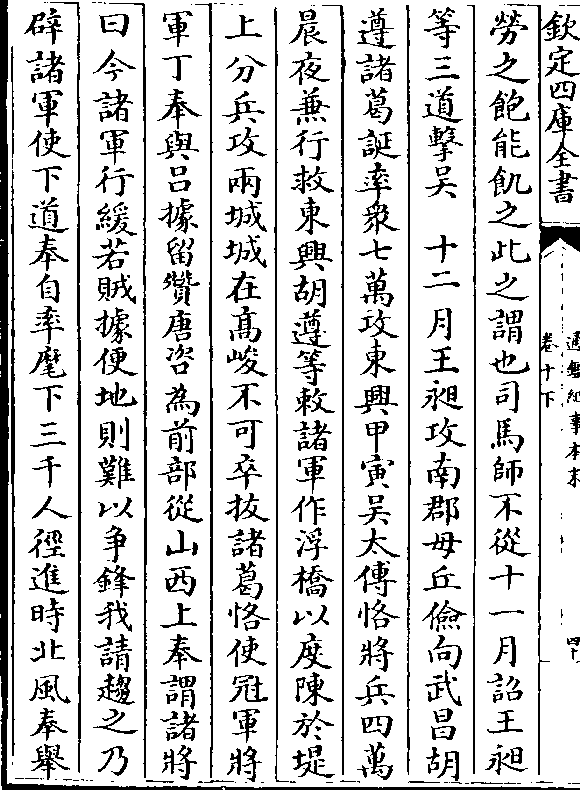 欽定四庫全書
通鑑紀事本末
卷十下
勞之飽能飢之此之謂也司馬師不從十一月詔王昶
等三道擊吳　十二月王昶攻南郡毋丘儉向武昌胡
遵諸葛誕率衆七萬攻東興甲寅吳太傅恪將兵四萬
晨夜兼行救東興胡遵等敕諸軍作浮橋以度陳於堤
上分兵攻兩城城在髙峻不可卒拔諸葛恪使冠軍將
軍丁奉與吕據留贊唐咨為前部從山西上奉謂諸將
曰今諸軍行緩若賊據便地則難以争鋒我請趨之乃
辟諸軍使下道奉自率麾下三千人徑進時北風奉舉